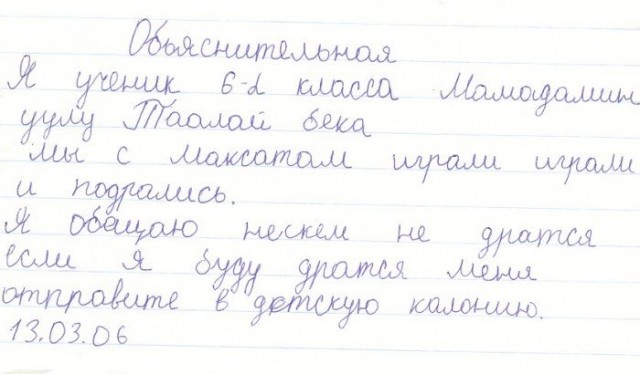 Обьяснительная
Я ученик 6-d класса Мамадамин
уулу Таалай бека
мы с максатом играли играли
и подрались.
Я обещаю нескем не дратся
если я буду дратся меня
отпправите в детскую калонию.
13.03.06